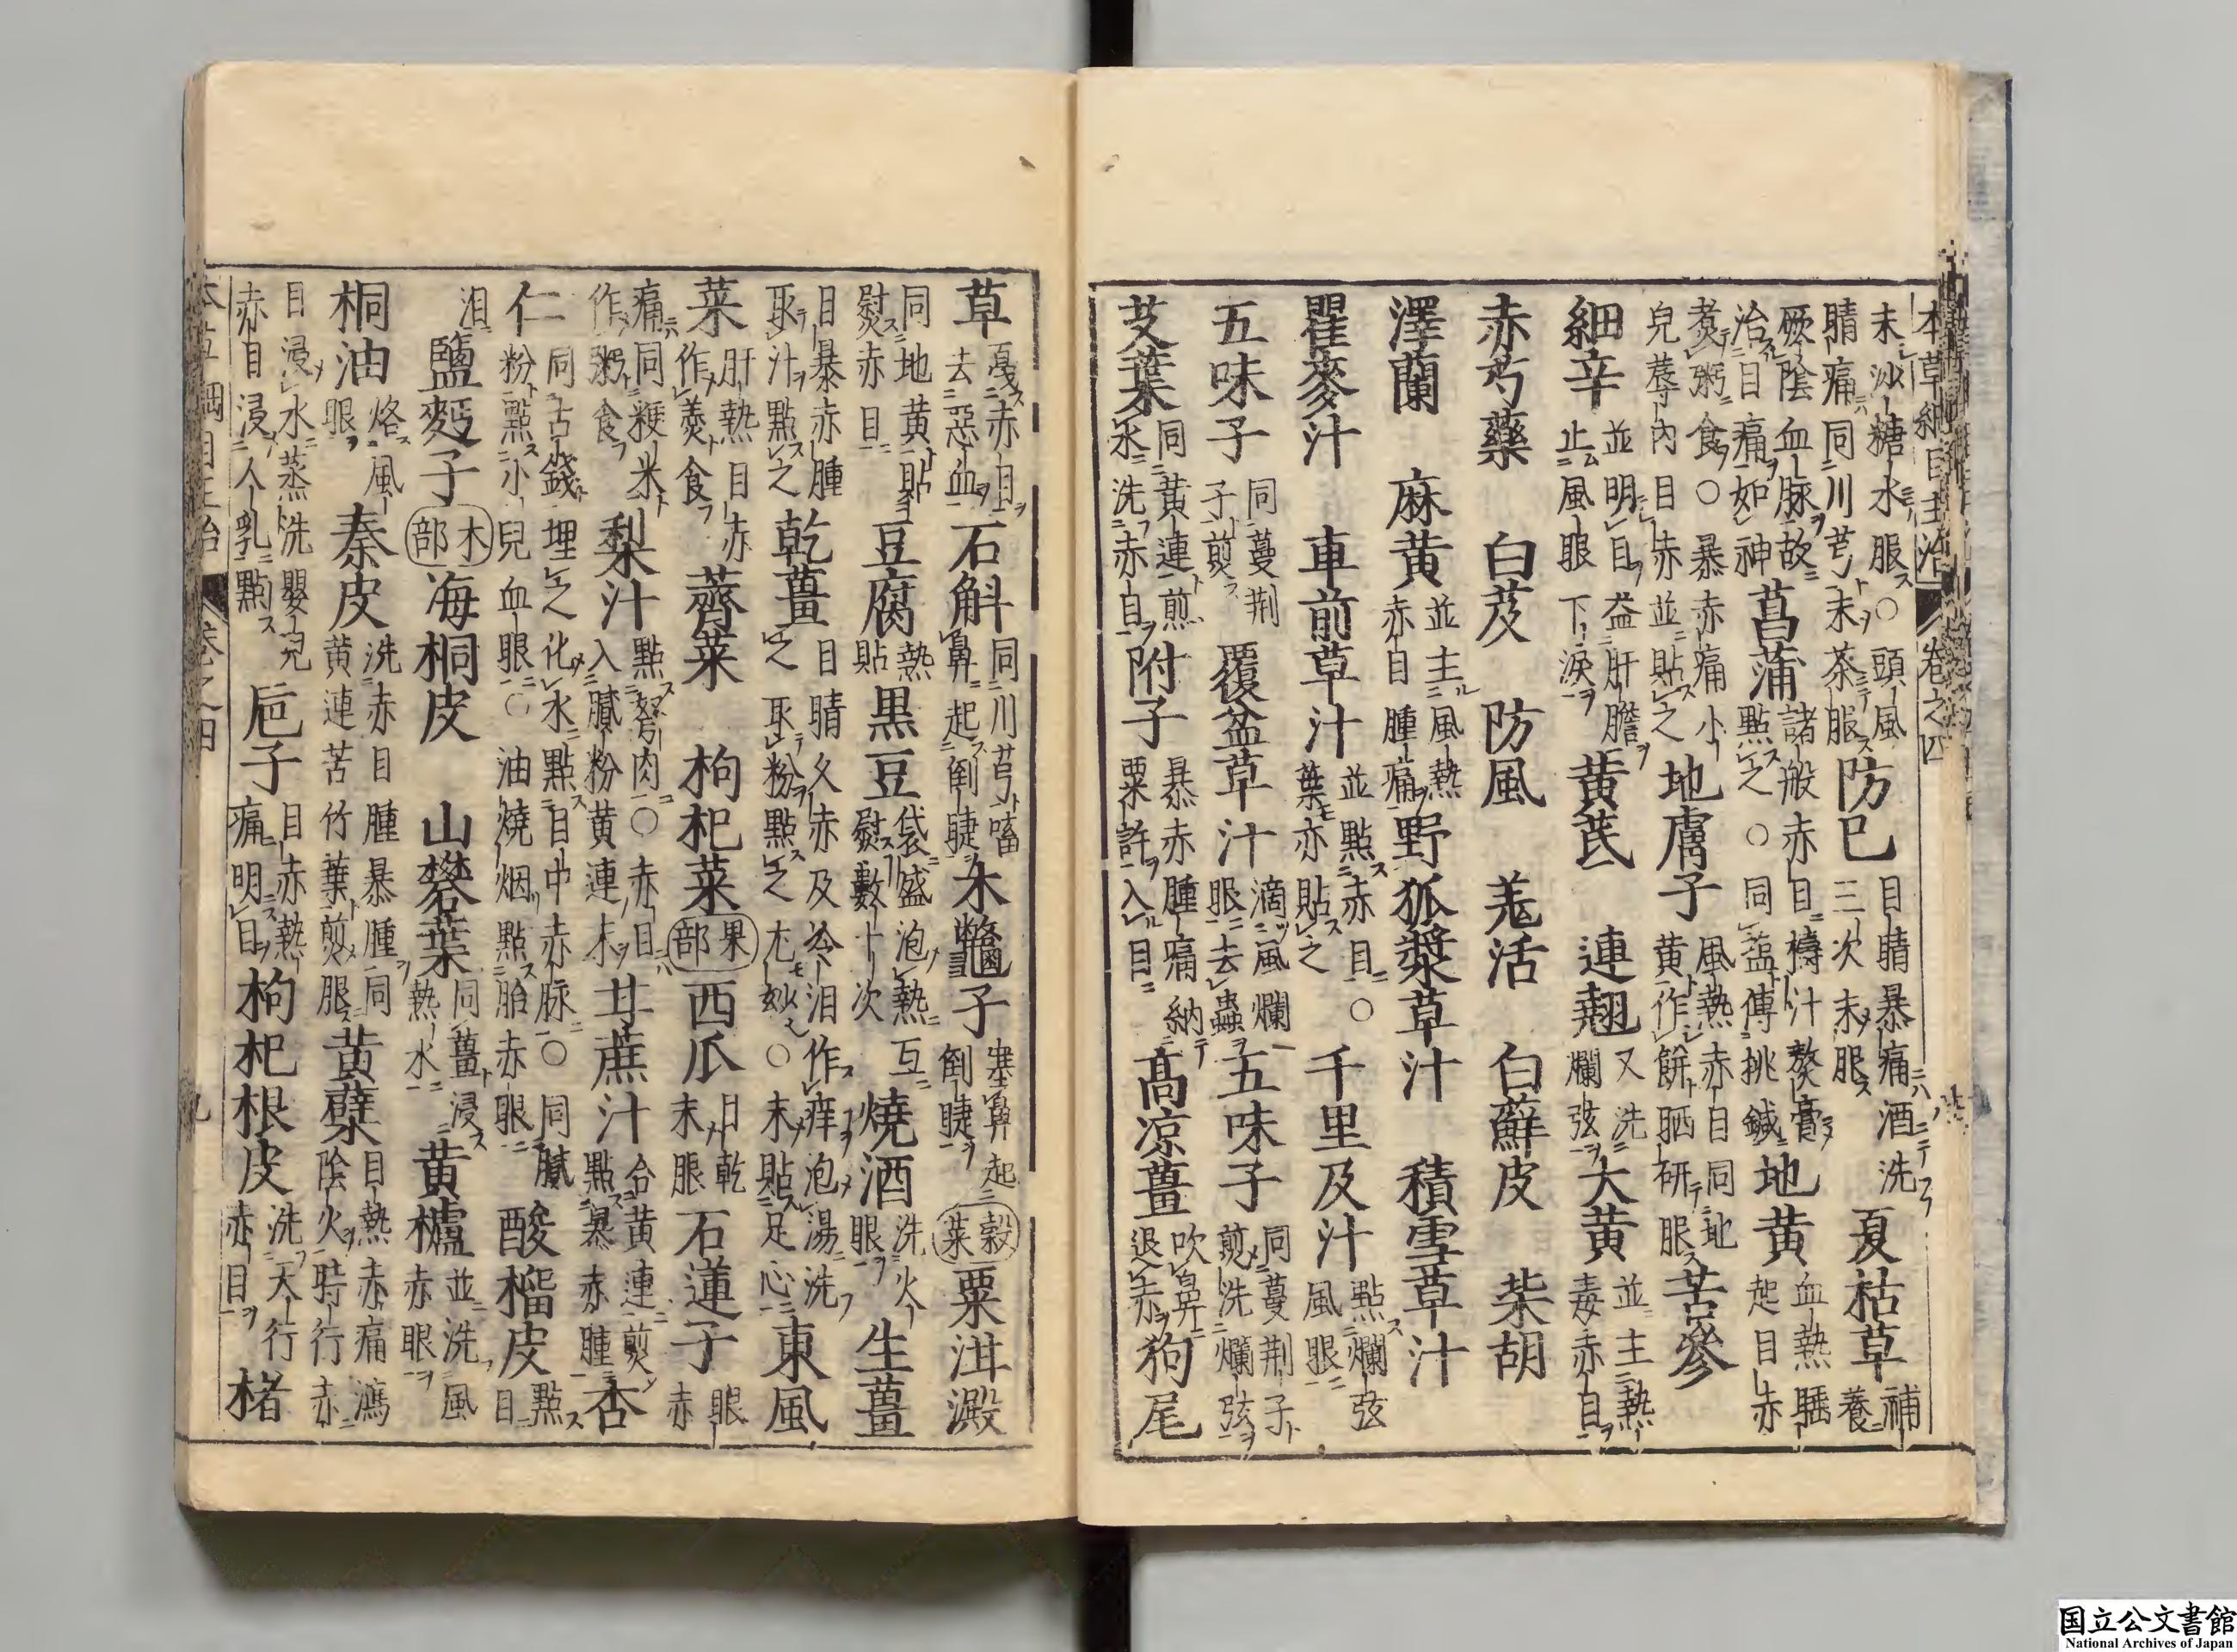 本草綱目主治 卷之四
末沙糖水服○頭風睛痛同川芎末茶服防已目睛暴痛酒洗三次末服夏枯草補養
厥陰血脉故治目痛如神菖蒲諸般赤目擣汁熬膏點之○同塩傅挑鍼地黄血熱睡起目赤
煑粥食○暴赤痛小兒蓐內目赤並貼之地膚子風熱赤目同地黄作餅晒研服苦參
細辛並明目益肝膽止風眼下淚黄茋 連翹又洗爛弦大黄並主熱毒赤目
赤芍藥 白芨 防風 羗活 白蘚皮 柴胡
澤蘭 麻黄並主風熱赤目腫痛野狐漿草汁 積雪草汁
瞿麥汁 車前草汁並點赤目○葉亦貼之千里及汁點爛弦風眼
五味子同蔓荆子煎覆盆草汁滴風爛眼去蟲五味子同蔓荆子煎洗爛弦
艾葉同黄連煎水洗赤目附子暴赤腫痛納粟許入目高凉薑吹鼻退赤狗尾
草戞赤目去惡血石斛同川芎㗜鼻起倒睫木鼈子塞鼻起倒睫穀菜粟泔澱
同地黄貼熨赤目豆腐熱貼黒豆袋盛泡熱互熨數十次燒酒洗火眼生薑
目暴赤腫取汁點之乾薑目睛久赤及冷泪作痒泡湯洗之取粉點之尤玅○末貼足心東風
菜肝熱目赤作羮食薺菜 枸杞菜果部西瓜日乾末服石蓮子眼赤
痛同粳米作粥食梨汁點努肉○赤目入膩粉黄連末甘蔗汁合黄連煎點暴赤腫杏
仁同古錢埋之化水點目中赤脉○同膩粉點小兒血眼○油燒烟點胎赤眼酸榴皮點目
泪鹽麩子木部海桐皮 山礬葉同薑浸熱水黄櫨並洗風赤眼
桐油烙風眼秦皮洗赤目腫暴腫同黄連苦竹葉煎服黄蘗目熱赤痛瀉陰火時行赤
目浸水蒸洗嬰兒赤目浸人乳點巵子目赤熱痛明目枸杞根皮洗天行赤目楮
本草綱目主治 卷之四 九
国立公文書館
National Archives of Japan